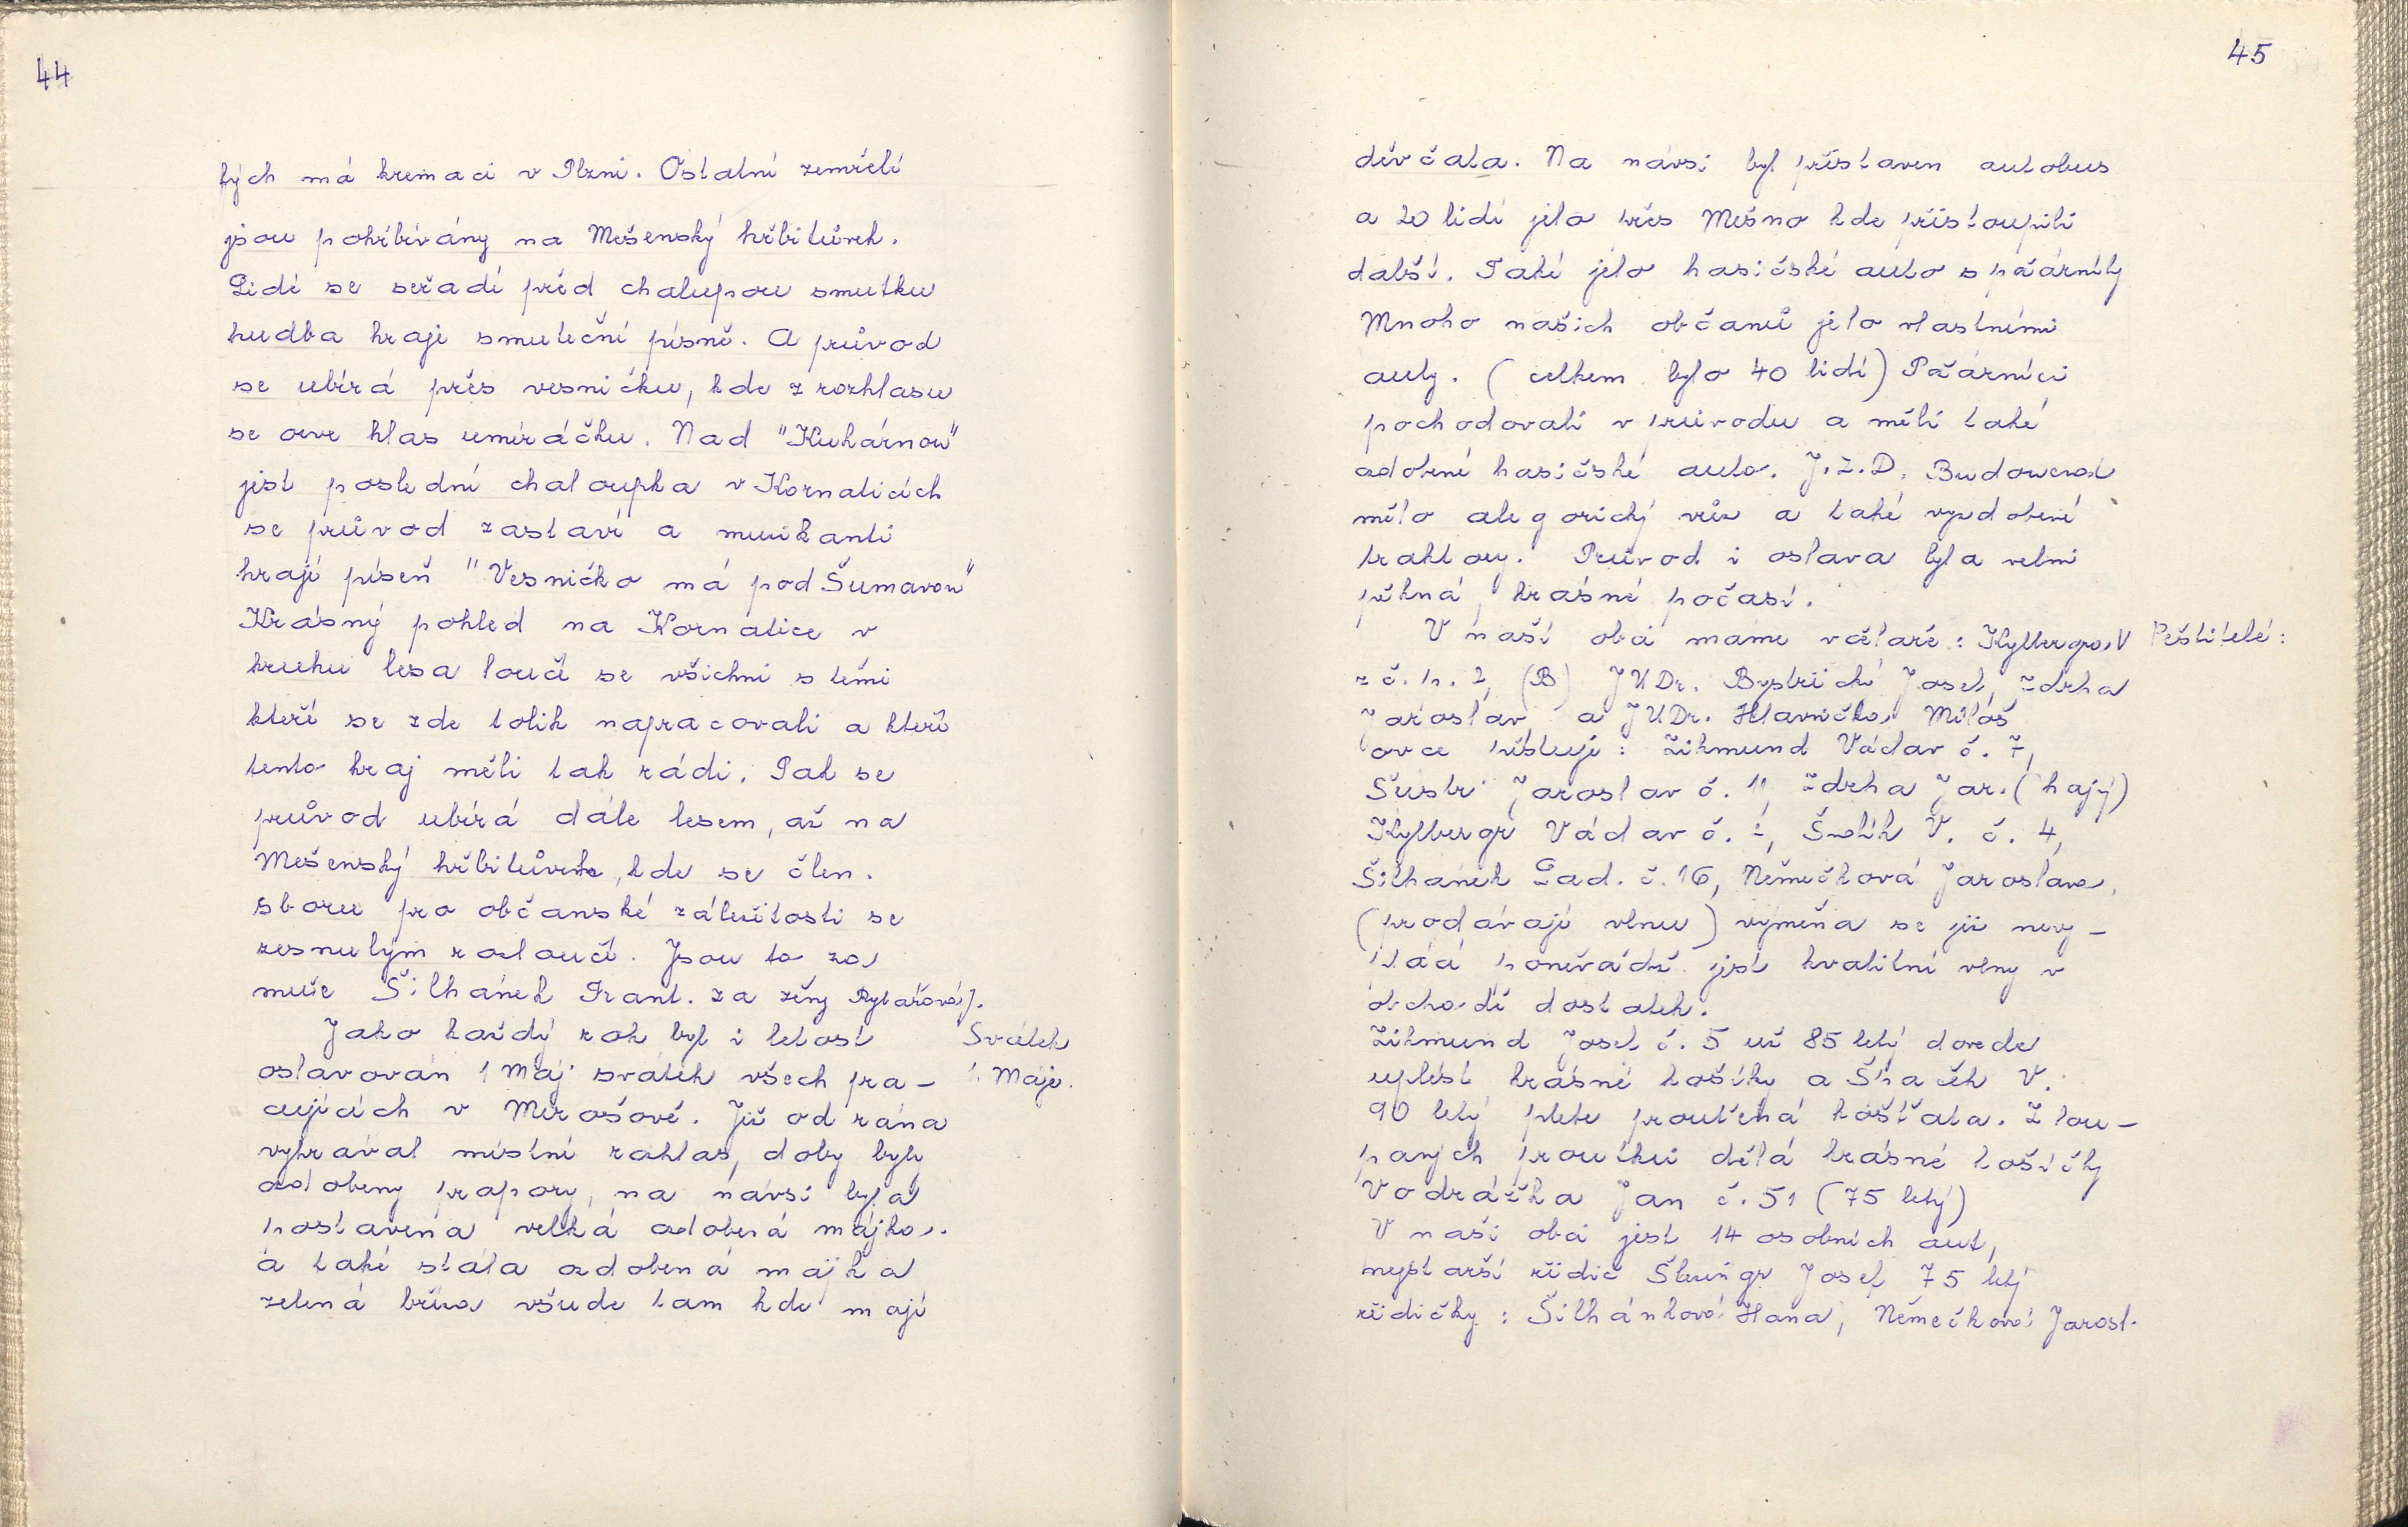 44
lých má kremaci v Plzni. Ostatní zemřelí
jsou pohřbívány na Mešenský hřbitůvek.
Lidé se seřadí před chalupou smutku
hudba hraje smuteční písně. A průvod
se ubírá přes vesničku, kde z rozhlasu
se ozve hlas umíráčku. Nad "Kuhárnou"
jest poslední chaloupka v Kornaticích
se průvod zastaví a muzikanti
hrají píseň "Vesničko má pod Šumavou"
Krásný pohled na Kornatice v
kruhu lesa loučí se všichni s těmi
kteří se zde tolik napracovali a kteří
tento kraj měli tak rádi. Pak se
průvod ubírá dále lesem, až na
Mešenský hřbitůvek, kde se člen.
sboru pro občanské záležitosti se
zesnulým rozloučí. Jsou to za
muže Šilhánek Frant. za ženy Rytářová J.
Jako každý rok byl i letost
Svátek
oslavován 1 Máj svátek všech pra-
1. Máje.
cujících v Mirošově. Již od rána
vyhrával místní rozhlas, domy byly
ozdobeny prapory, na návsi byla
postavena velká ozdobená májka.
a také stála ozdobená májka
zelená bříza všude tam kde mají
45
děvčata. Na návsi byl přistaven autobus
a 20 lidí jelo přes Mešno kde přistoupili
další. Také jelo hasičské auto s požárníky
Mnoho našich občanů jelo vlastními
auty. (celkem bylo 40 lidí) Požárníci
pochodovali v průvodu a měli také
ozdobené hasičské auto. J.Z.D. Budoucnost
mělo alegorický vůz a také vyzdobené
traktory. Průvod i oslava byla velmi
pěkná, krásné počasí.
V naší obci máme včelaře: Kylbergr V
Pěstitelé:
z č. p. 2, (B) JUDr. Bystrický Josef, Zdrha
Jaroslav, a JUDr. Hlavnička Miloš
ovce pěstují: Zikmund Václav č. 7,
Šustr Jaroslav č. 11, Zdrha Jar. (hajný)
Kylbergr Václav č. 2, Šmolík V. č. 4,
Šilhánek Lad. č. 16, Němečková Jaroslava,
(prodávají vlnu) výměňa se již nevy-
plácí poněvádž jest kvalitní vlny v
obchodě dostatek.
Zikmund Josef č. 5 už 85 letý dovede
uplést krásné košíky a Špaček V.
90 letý plete proutěná košťata. Z lou-
paných proutků dělá krásné košíčky
Vodrážka Jan č. 51 (75 letý)
V naší obci jest 14 osobních aut,
nejstarší řidič Šteingr Josef 75 letý
řidičky: Šilhánková Hana, Němečková Jarosl.